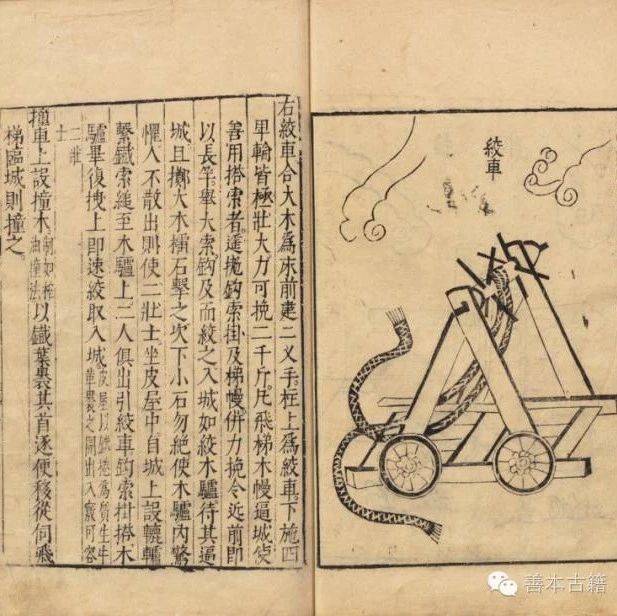 絞車
右絞車合大木爲床前建二叉手柱上爲絞車下施四
早輪皆極壯大力可挽二千斤凡飛梯木幔逼城使
善用搭索者遥抛鈎索掛及梯幔併力挽令近前即
以長竿舉大索鈎及而絞之入城如絞木驢待其逼
城且擲大木檑石擊之次下小石勿絕使木驢內驚
懼人不散出則使二壯士坐皮屋中自城上設轆轤
繫鐵索縋至木驢上二人俱出引絞車鈎索掛搭木
驢畢復拽上即速絞取入城皮屋以鐵爲質生牛革裹之開出入竅可容
二壯士
撞車上設撞木制如榨油撞法以鐵葉裹其首逐便移從伺飛
梯臨城則撞之
善本古籍